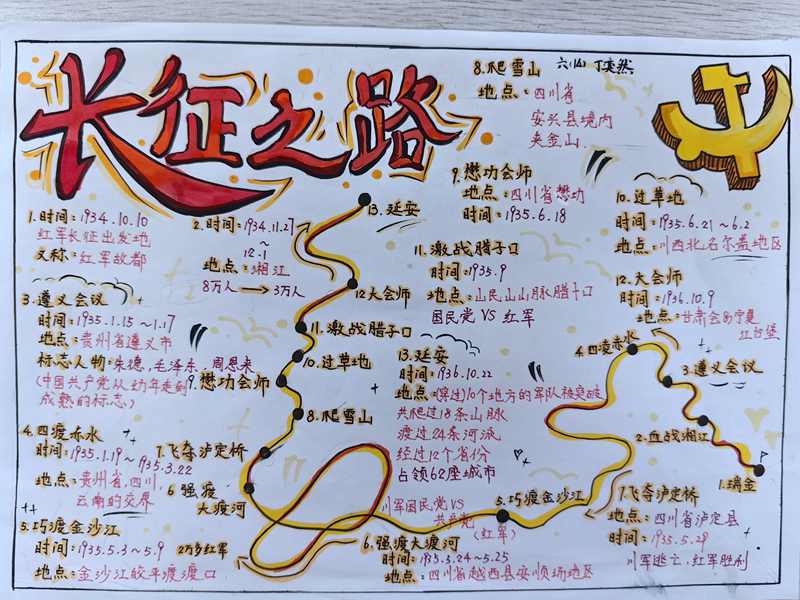 长征之路
8.爬雪山
六(14) 丁奕然
地点:四川省
安兴县境内
夹金山
9.懋功会师
地点:四川省懋功
时间:1935.6.18
10.过草地
时间:1935.6.21~6.2
地点:川西北名尔盖地区
1.时间:1934.10.10
红军长征出发地
又称:红军故都
2.时间:1934.11.27
~
12.1
地点:湘江
8万人→3万人
13.延安
12大会师
11.激战腊子口
10.过草地
9.懋功会师
8.爬雪山
7.飞夺泸定桥
6 强渡
大渡河
5.巧渡金沙江
4.四凌赤水
3.遵义会议
2.血战湘江
1.瑞金
11.激战腊子口
时间:1935.9
地点:山民山山脉腊子口
国民党 VS 红军
12.大会师
时间:1936.10.9
地点:甘肃会宁夏
江台堡
3.遵义会议
时间:1935.1.15~1.17
地点:贵州省遵义市
标志人物:朱德,毛泽东,周恩来
(中国共产党从幼年走到
成熟的标志)
13.延安
时间:1936.10.22
地点:(穿过)10个地方的军队被突破
共爬过18条山脉
渡过24条河流
经过12个省份
占领62座城市
4.四渡赤水
时间:1935.1.19~1935.3.22
地点:贵州省,四川,
云南的交界
5.巧渡金沙江
时间:1935.5.3~5.9
地点:金沙江皎平渡渡口
2万多红军
川军国民党 VS
共产党
(红军)
6.强渡大渡河
时间:1935.5.24~5.25
地点:四川省越西县安顺场地区
7.飞夺泸定桥
地点:四川省泸定县
时间:1935.5.29
川军逃亡,红军胜利